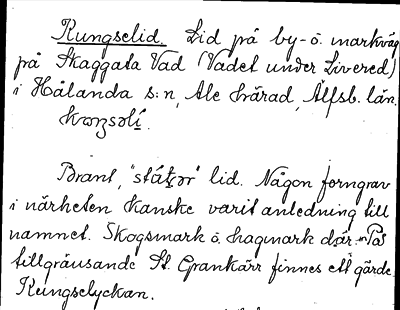 Kungselid. Lid på by- o. markväg
på Skaggata Vad (Vadet under Livered)
i Hålanda s:n, Ale härad, Älfsb. län.
Brant, "stát͡ʒər" lid. Någon forngrav
i närheten kanske varit anledning till
namnet. Skogsmark o. hagmark där. På
tillgränsande St. Grankärr finnes ett gärde
Kungselyckan.